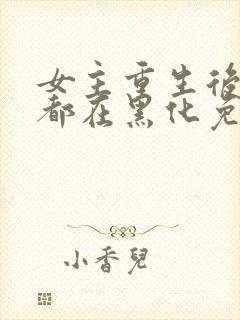 女主重生後
都在黑化免
小香兒